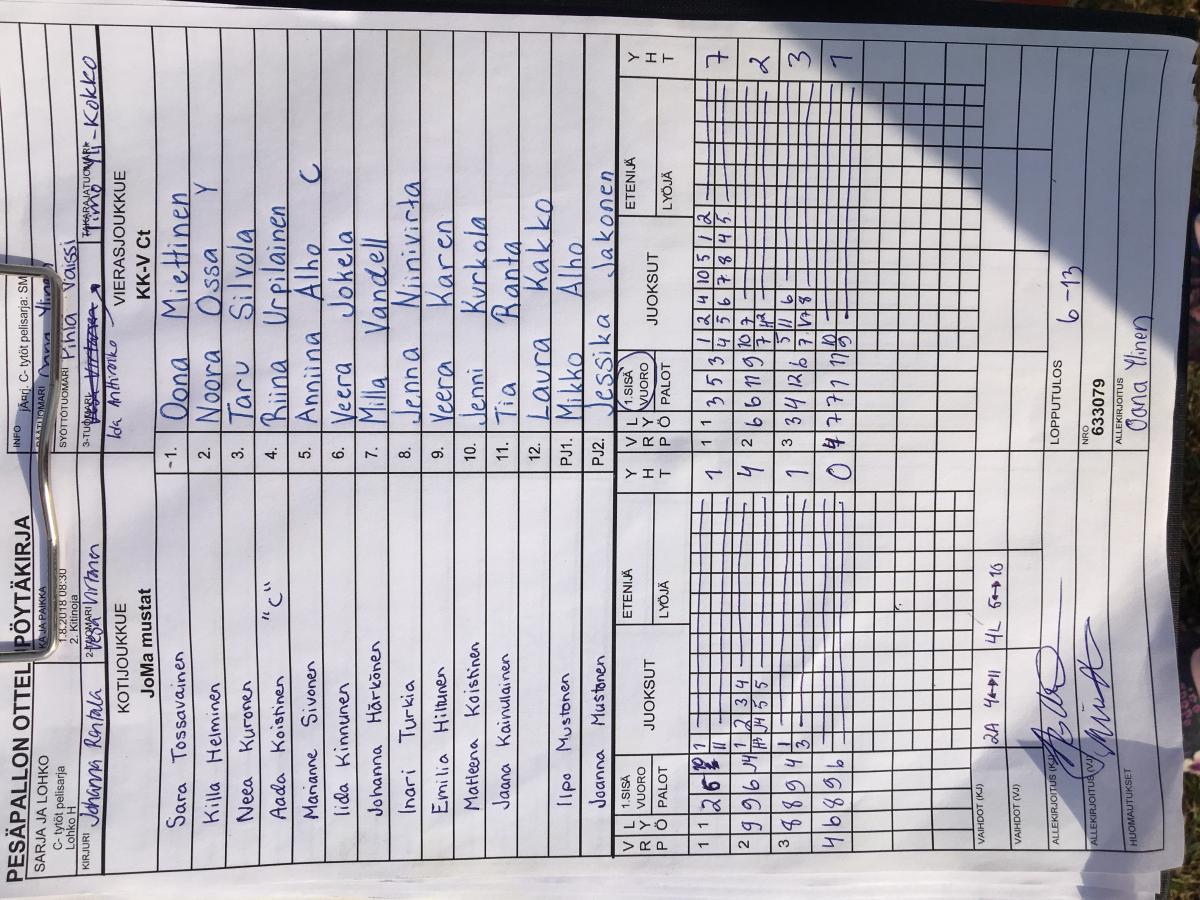 PESÄPALLON OTTEL PÖYTÄKIRJA
SARJA JA LOHKO
C- tytöt pelisarja
Lohko H
KA JA PAIKKA
1.8.2018 08:30
2. Kitinoja
INFO
jÄsrj. C- tytöt pelisarja: SM
SYÖTTÖTUOMARI Pihla Vaissi
KIRJURI Johanna Rantala
2-TUOMARI Vesa Virtanen
3-TUOMARI
Timo Yli-Kokko
KOTIJOUKKUE
JoMa mustat
VIERASJOUKKUE
KK-V Ct
Sara Tossavainen 1. Oona Miettinen
Killa Helminen 2. Noora Ossa Y
Neea Kuronen 3. Taru Silvola
Aada Koistinen "C" 4. Riina Urpilainen
Marianne Sivonen 5. Anniina Alho C
Iida Kinnunen 6. Veera Jokela
Johanna Härkönen 7. Milla Vandell
Inari Turkia 8. Jenna Niinivirta
Emilia Hiltunen 9. Veera Karen
Matleena Koistinen 10. Jenni Kurkola
Jaana Kainulainen 11. Tia Ranta
12. Laura Kakko
Ilpo Mustonen PJ1. Mikko Alho
Joanna Mustonen PJ2. Jessika Jakonen
VRP LYÖ 1.SISÄ VUORO PALOT JUOKSUT ETENIJÄ LYÖJÄ YHT VRP LYÖ 1.SISÄ VUORO PALOT JUOKSUT ETENIJÄ LYÖJÄ YHT
1 1 2 1 1 1 1 3 5 3 1 2 4 10 5 1 2 7
11 4 5 6 7 8 4 5
2 9 9 6 1 2 3 4 4 2 6 6 11 9 10 7 2
3 8 8 9 4 1 1 3 3 4 12 6 5 11 6 3
3
4 6 8 9 6 0 4 7 7 11 10 1
9
VAIHDOT (KJ) 2A 4↔11 4L 5↔10
VAIHDOT (VJ)
ALLEKIRJOITUS (KJ)
LOPPUTULOS 6-13
ALLEKIRJOITUS (VJ)
NRO
633079
HUOMAUTUKSET
ALLEKIRJOITUS
Oana Ylinen